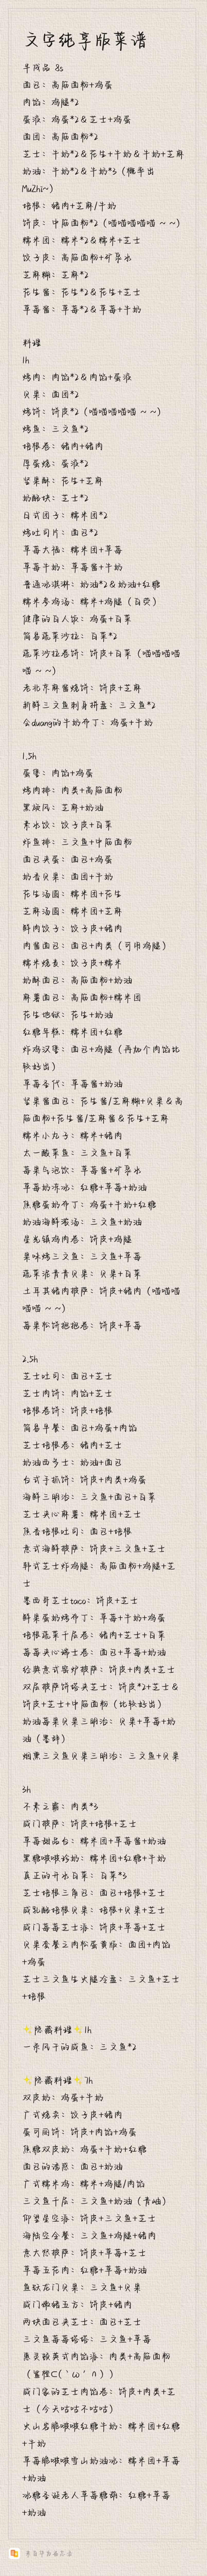 文字纯享版菜谱
半成品 8s
面包：高筋面粉+鸡蛋
肉馅：鸡腿*2
蛋液：鸡蛋*2&芝士+鸡蛋
面团：高筋面粉*2
芝士：牛奶*2&花生+牛奶&牛奶+芝麻
奶油：牛奶*2&牛奶*3（概率出
MuZhi~）
培根：猪肉+芝麻/牛奶
饼皮：中筋面粉*2（喵喵喵喵喵~~）
糯米团：糯米*2&糯米+芝士
饺子皮：高筋面粉+矿泉水
芝麻糊：芝麻*2
花生酱：花生*2&花生+芝士
草莓酱：草莓*2&草莓+牛奶
料理
1h
烤肉：肉馅*2&肉馅+蛋液
贝果：面团*2
烤饼：饼皮*2（喵喵喵喵喵~~）
烤鱼：三文鱼*2
培根卷：猪肉+猪肉
厚蛋烧：蛋液*2
坚果酥：花生+芝麻
奶酪块：芝士*2
日式团子：糯米团*2
烤吐司片：面包*2
草莓大福：糯米团+草莓
草莓牛奶：草莓酱+牛奶
普通冰淇淋：奶油*2&奶油+红糖
糯米参鸡汤：糯米+鸡腿（自荧）
健康的白人饭：鸡蛋+白菜
简易蔬菜沙拉：白菜*2
蔬菜沙拉卷饼：饼皮+白菜（喵喵喵喵
喵~~）
老北京麻酱烧饼：饼皮+芝麻
新鲜三文鱼刺身拼盘：三文鱼*2
会duang的牛奶布丁：鸡蛋+牛奶
1.5h
蛋堡：肉馅+鸡蛋
烤肉排：肉类+高筋面粉
黑旋风：芝麻+奶油
素水饺：饺子皮+白菜
炸鱼排：三文鱼+中筋面粉
面包夹蛋：面包+鸡蛋
奶香贝果：面团+牛奶
花生汤圆：糯米团+花生
芝麻汤圆：糯米团+芝麻
鲜肉饺子：饺子皮+猪肉
肉酱面包：面包+肉类（可用鸡腿）
糯米烧麦：饺子皮+糯米
奶酥面包：高筋面粉+奶油
麻薯面包：高筋面粉+糯米团
花生地狱：花生+奶油
红糖年糕：糯米团+红糖
炸鸡汉堡：面包+鸡腿（再加个肉馅比
较好出）
草莓圣代：草莓酱+奶油
坚果酱面包：花生酱/芝麻糊+贝果&高
筋面粉+花生酱/芝麻酱&花生+芝麻
糯米小丸子：糯米+猪肉
太一酸菜鱼：三文鱼+白菜
莓果气泡饮：草莓酱+矿泉水
草莓奶冻冰：红糖+草莓+奶油
焦糖蛋奶布丁：鸡蛋+牛奶+红糖
奶油海鲜浓汤：三文鱼+奶油
星光镇鸡肉卷：饼皮+鸡腿
果味烤三文鱼：三文鱼+草莓
蔬菜沙青青贝果：贝果+白菜
土耳其猪肉披萨：饼皮+猪肉（喵喵喵
喵喵~~）
莓果松饼抱抱卷：饼皮+草莓
2.5h
芝士吐司：面包+芝士
芝士肉饼：肉馅+芝士
培根卷饼：饼皮+培根
简易早餐：面包+鸡蛋+肉馅
芝士培根卷：猪肉+芝士
奶油西多士：奶油+面包
台式手抓饼：饼皮+肉类+鸡蛋
海鲜三明治：三文鱼+面包+白菜
芝士夹心麻薯：糯米团+芝士
焦香培根吐司：面包+培根
意式海鲜披萨：饼皮+三文鱼+芝士
韩式芝士炸鸡腿：高筋面粉+鸡腿+芝
士
墨西哥芝士taco：饼皮+芝士
鲜果蛋奶烤布丁：草莓+牛奶+鸡蛋
培根蔬菜千层卷：猪肉+芝士+白菜
莓莓夹心瑞士卷：面包+草莓+奶油
经典意式窑炉披萨：饼皮+肉类+芝士
双层披萨饼塔夹芝士：饼皮*2+芝士&
饼皮+芝士+中筋面粉（比较好出）
奶油莓果贝果三明治：贝果+草莓+奶
油（墨辞）
烟熏三文鱼贝果三明治：三文鱼+贝果
3h
不素之霸：肉类*3
咸门披萨：饼皮+培根+芝士
草莓甜品台：糯米团+草莓酱+奶油
黑糖啵啵珍奶：糯米团+红糖+牛奶
真正的开水白菜：白菜*3
芝士培根三角包：面包+培根+芝士
咸乳酪培根贝果：培根+贝果+芝士
咸门莓莓芝士派：饼皮+草莓+芝士
贝果套餐之肉松蛋黄船：面团+肉馅
+鸡蛋
芝士三文鱼生火腿冷盘：三文鱼+芝士
+培根
✨隐藏料理✨1h
一条风干的咸鱼：三文鱼*2
✨隐藏料理✨7h
双皮奶：鸡蛋+牛奶
广式烧卖：饺子皮+猪肉
蛋可图饼：饼皮+肉馅+鸡蛋
焦糖双皮奶：鸡蛋+牛奶+红糖
面包的诱惑：面包+奶油
广式糯米鸡：糯米+鸡腿/肉馅
三文鱼千层：三文鱼+奶油（青岫）
仰望星空派：饼皮+三文鱼+芝士
海陆空全餐：三文鱼+鸡腿+猪肉
意大然披萨：饼皮+草莓+芝士
草莓五花肉：红糖+草莓+奶油
鱼跃龙门贝果：三文鱼+贝果
咸门嫩猪五方：饼皮+猪肉
两块面包夹芝士：面包+芝士
三文鱼莓莓塔塔：三文鱼+草莓
惠灵顿英式肉馅派：肉类+高筋面粉
（蜜程⊂(´ω´∩)）
咸门客的芝士肉馅卷：饼皮+肉类+芝
士（今天咕咕不咕咕）
火山岩脆啵啵红糖牛奶：糯米团+红糖
+牛奶
草莓脆啵啵雪山奶油冰：糯米团+草莓
+奶油
冰糖圣诞老人草莓糖葫：红糖+草莓
+奶油